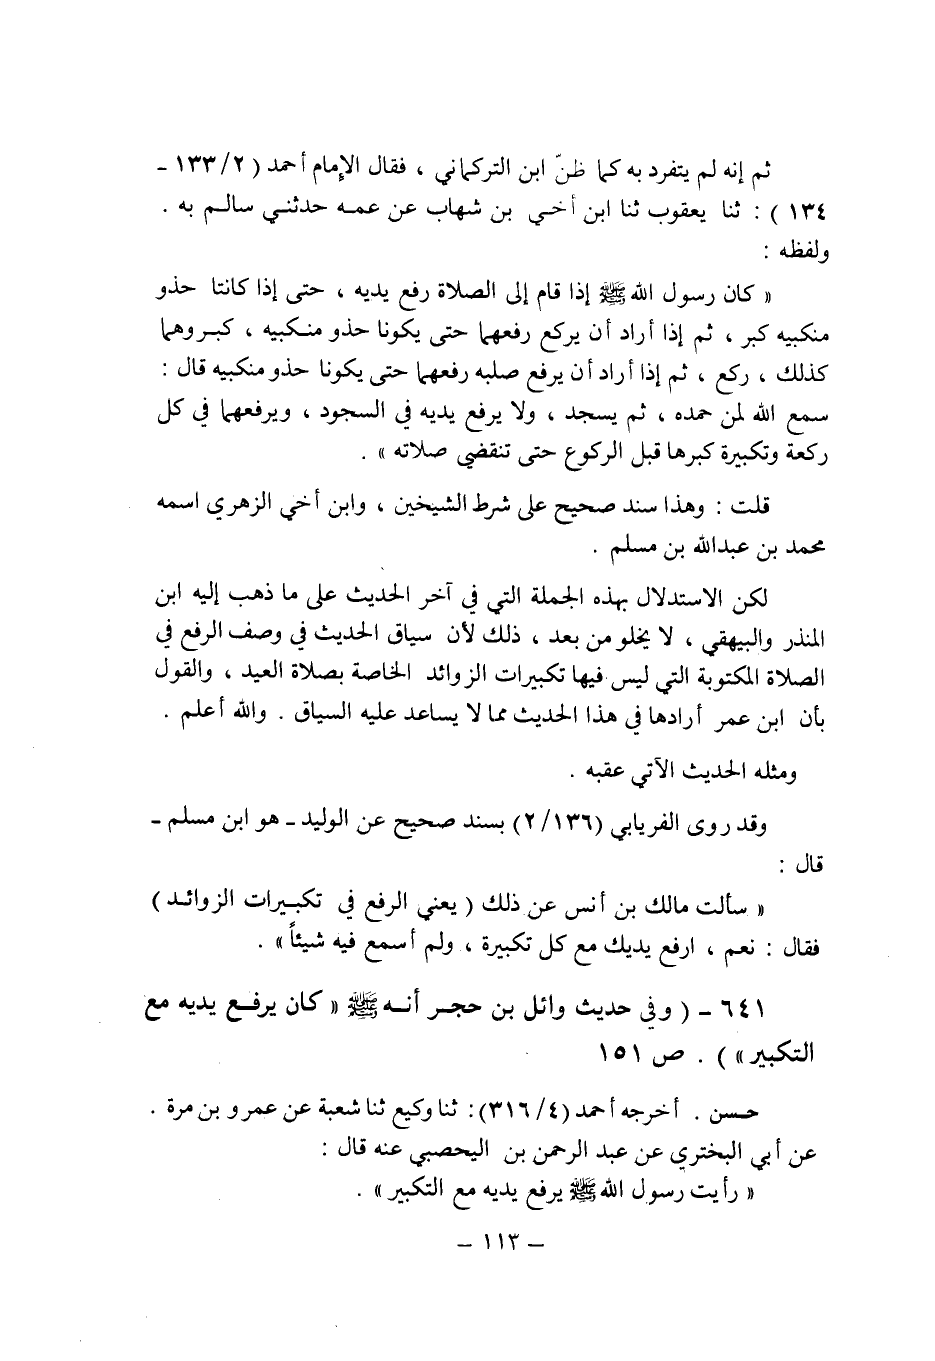 ثم إنه لم يتفرد به كما ظنّ ابن التركماني ، فقال الإمام أحمد ( ٢/ ١٣٣ -
١٣٤ ) : ثنا يعقوب ثنا ابن أخي بن شهاب عن عمه حدثني سالم به .
ولفظه :
« كان رسول الله ﷺ إذا قام إلى الصلاة رفع يديه ، حتى إذا كانتا حذو
منكبيه كبر ، ثم إذا أراد أن يركع رفعهما حتى يكونا حذو منكبيه ، كبروهما
كذلك ، ركع ، ثم إذا أراد أن يرفع صلبه رفعهما حتى يكونا حذو منكبيه قال :
سمع الله لمن حمده ، ثم يسجد ، ولا يرفع يديه في السجود ، ويرفعهما في كل
ركعة وتكبيرة كبرها قبل الركوع حتى تنقضي صلاته » .
قلت : وهذا سند صحيح على شرط الشيخين ، وابن أخي الزهري اسمه
محمد بن عبدالله بن مسلم .
لكن الاستدلال بهذه الجملة التي في آخر الحديث على ما ذهب إليه ابن
المنذر والبيهقي ، لا يخلو من بعد ، ذلك لأن سياق الحديث في وصف الرفع في
الصلاة المكتوبة التي ليس فيها تكبيرات الزوائد الخاصة بصلاة العيد ، والقول
بأن ابن عمر أرادها في هذا الحديث مما لا يساعد عليه السياق . والله أعلم .
ومثله الحديث الآتي عقبه .
وقد روى الفريابي (١٣٦/ ٢) بسند صحيح عن الوليد - هو ابن مسلم -
قال :
« سألت مالك بن أنس عن ذلك ( يعني الرفع في تكبيرات الزوائد )
فقال : نعم ، ارفع يديك مع كل تكبيرة ، ولم أسمع فيه شيئاً » .
٦٤١ - ( وفي حديث وائل بن حجر أنه ﷺ « كان يرفع يديه مع
التكبير » ) . ص ١٥١
حسن . أخرجه أحمد (٤/ ٣١٦): ثنا وكيع ثنا شعبة عن عمرو بن مرة .
عن أبي البختري عن عبد الرحمن بن اليحصبي عنه قال :
« رأيت رسول الله ﷺ يرفع يديه مع التكبير » .
- ١١٣ -